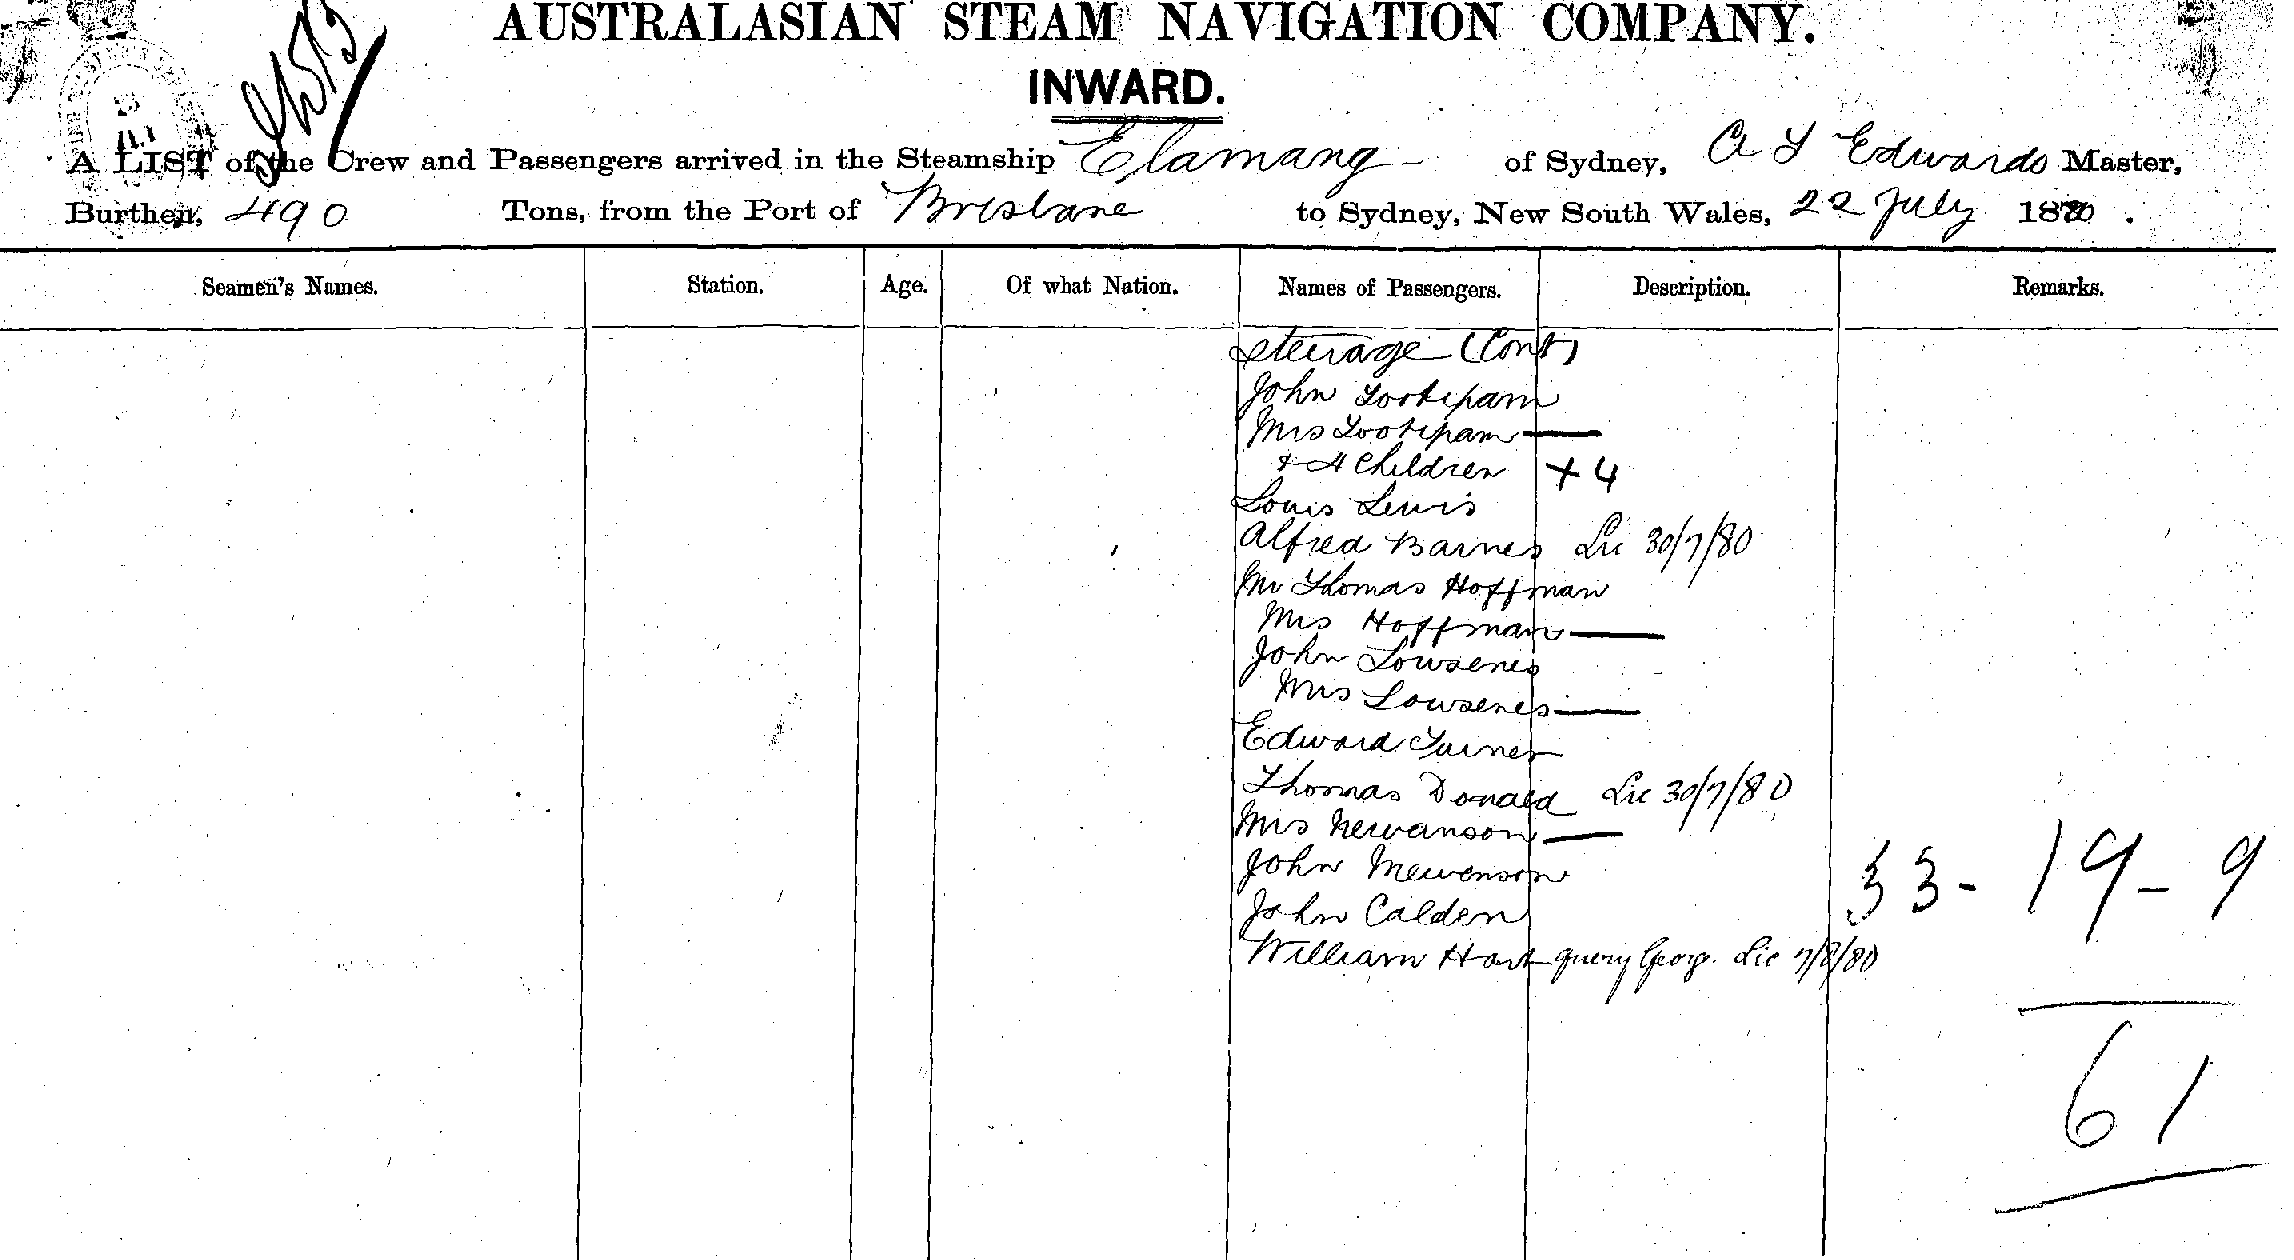 AUSTRALASIAN STEAM NAVIGATION COMPANY.
INWARD.
A LIST of the Crew and Passengers arrived in the Steamship Elamang of Sydney, A L Edwards Master,
Burthen, 490 Tons, from the Port of Brisbane to Sydney, New South Wales, 22 July 1880.
Seamen's Names. Station. Age. Of what Nation. Names of Passengers. Description. Remarks.
Steerage (Cont)
John
Mrs
+ 4 Children + 4
Louis Lewis
Alfred Barnes Lic 30/7/80
Mr Thomas Hoffman
Mrs Hoffman
John Lowsenes
Mrs Lowsenes
Edward Turner
Thomas Donald Lic 30/7/80
Mrs Newanson
John Mewenson
33 - 19 - 9
John Calden
William Hart query Lic 7/8/80
61